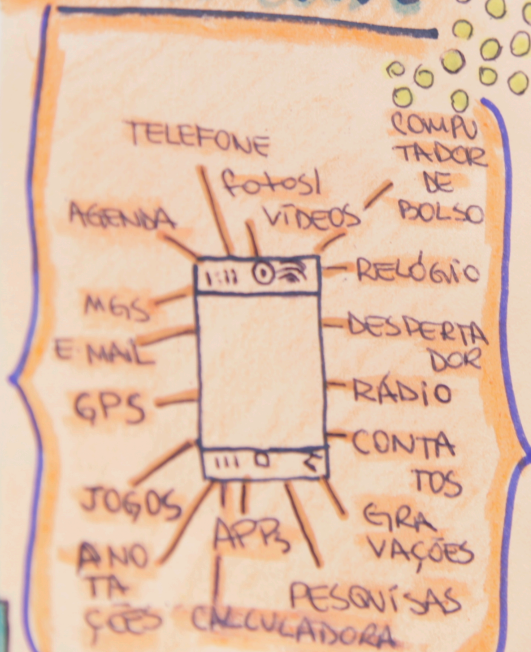 TELEFONE
fotos/
VÍDEOS
COMPU
TADOR
DE
BOLSO
AGENDA
RELÓGIO
MGS
DESPERTA
DOR
E-MAIL
RÁDIO
GPS
CONTA
TOS
JOGOS
APPs
GRA
VAÇÕES
ANO
TA
ÇÕES
PESQUISAS
CALCULADORA